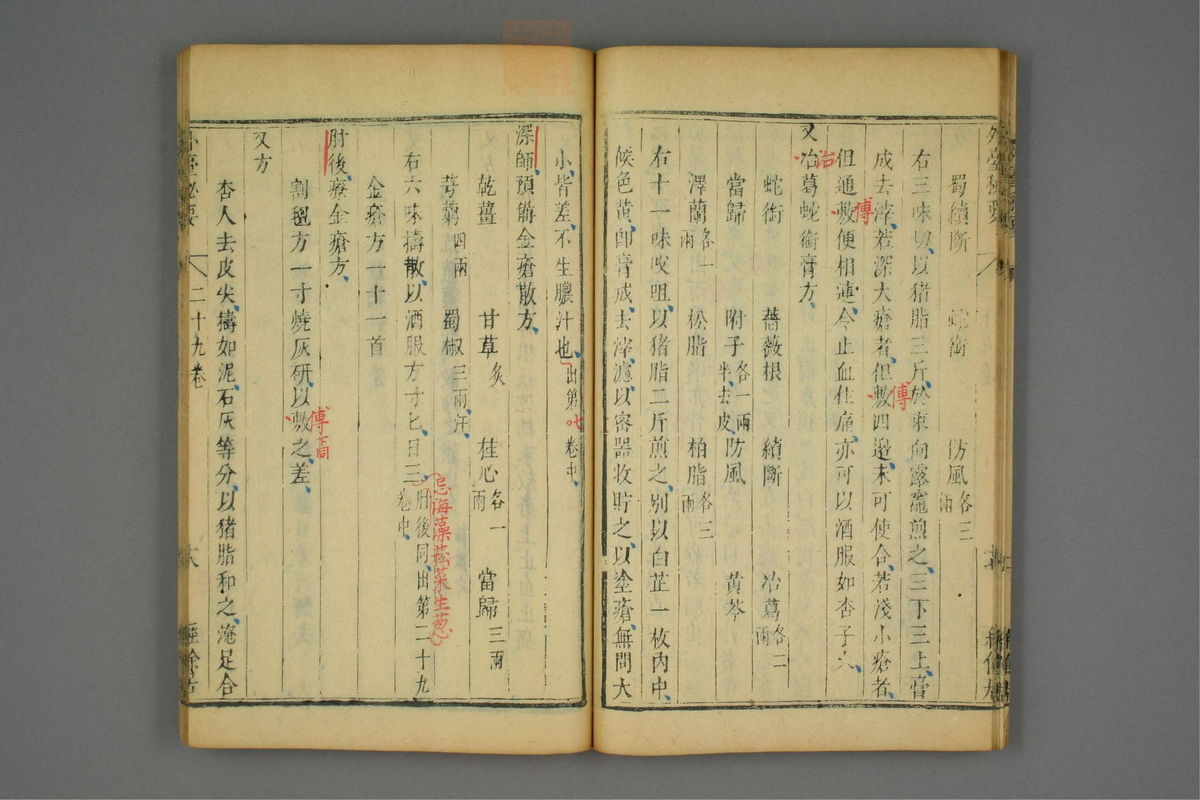 蜀續斷 蛇銜 防風各三兩
右三味切以猪脂三斤於東向露竈煎之三下三上膏
成去滓若深大瘡者但敷四邊未可使合若淺小瘡者
傅
但通敷便相連令止血住痛亦可以酒服如杏子大
傅
又冶葛蛇銜膏方
治
蛇銜 薔薇根 續斷 冶葛各二兩
當歸 附子各一兩半去皮 防風 黃芩
澤蘭各一兩 松脂 柏脂各三兩
右十一味㕮咀以猪脂二斤煎之別以白芷一枚內中
候色黃即膏成去滓濾以密器收貯之以塗瘡無問大
小皆差不生膿汁也出第 卷中
深師預備金瘡散方
乾薑 甘草炙 桂心各一兩 當歸三兩
芎藭四兩 蜀椒三兩汗
右六味擣散以酒服方寸匕日三肘後同出第二十九卷中
忌海藻菘菜生葱
金瘡方一十一首
肘後療金瘡方
割氊方一寸燒灰研以敷之差
傅下同
又方
杏人去皮尖擣如泥石灰等分以猪脂和之淹足合
外臺秘要 二十九卷 六 經餘居